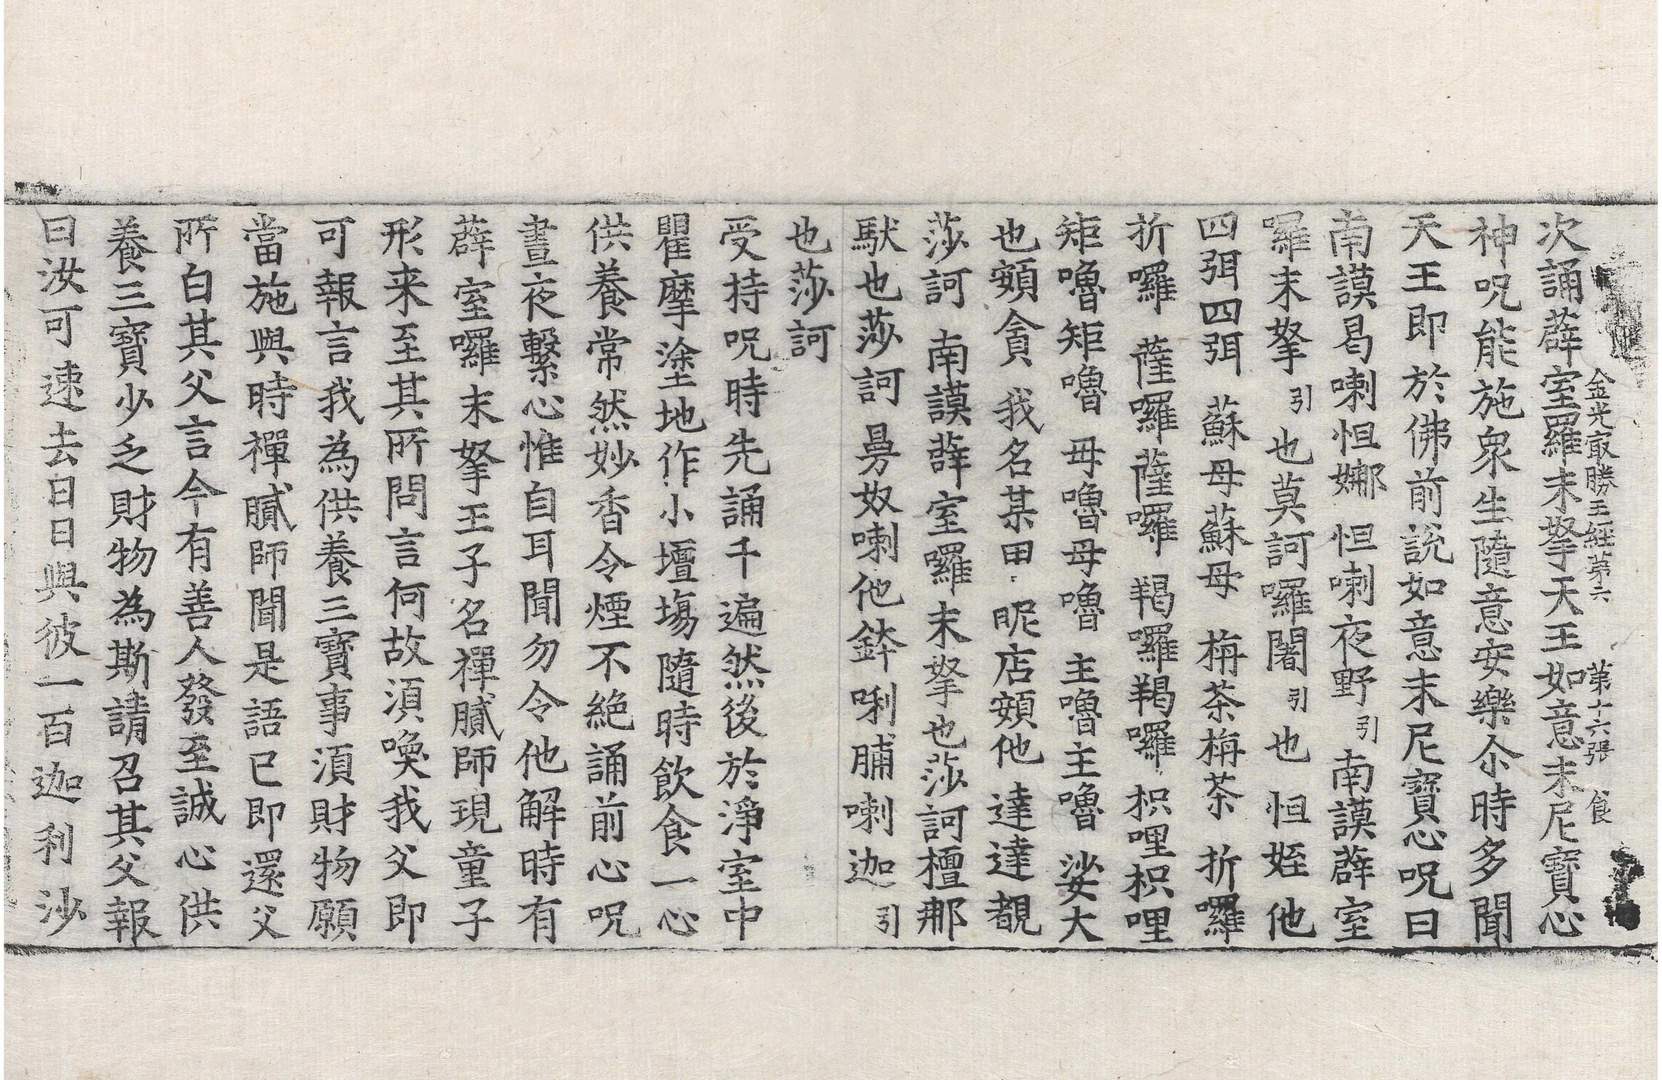 金光㝡勝王經第六　第十六張　食
次誦薜室羅末拏天王如意末尼寶心
神呪能施衆生隨意安樂尒時多聞
天王即於佛前說如意末尼寶心呪曰
南謨曷喇怛娜 怛喇夜野引 南謨薜室
囉末拏引也莫訶囉闍引也 怛姪他
四弭四弭 蘇母蘇母 栴荼栴荼 折囉
折囉 薩囉薩囉 羯囉羯囉 枳哩枳哩
矩嚕矩嚕 母嚕母嚕 主嚕主嚕 娑大
也頞貪 我名某甲 昵店頞他 達達覩
莎訶 南謨薜室囉末拏也莎訶檀那
馱也莎訶 曼奴喇他鉢唎脯喇迦引
也莎訶
受持呪時先誦千遍然後於淨室中
瞿摩塗地作小壇場隨時飲食一心
供養常然妙香令煙不絶誦前心呪
晝夜繫心惟自耳聞勿令他解時有
薜室囉末拏王子名禪膩師現童子
形来至其所問言何故湏喚我父即
可報言我為供養三寶事湏財物願
當施與時禪膩師聞是語已即還父
所白其父言今有善人發至誠心供
養三寶少乏財物為斯請召其父報
曰汝可速去日日與彼一百迦利沙